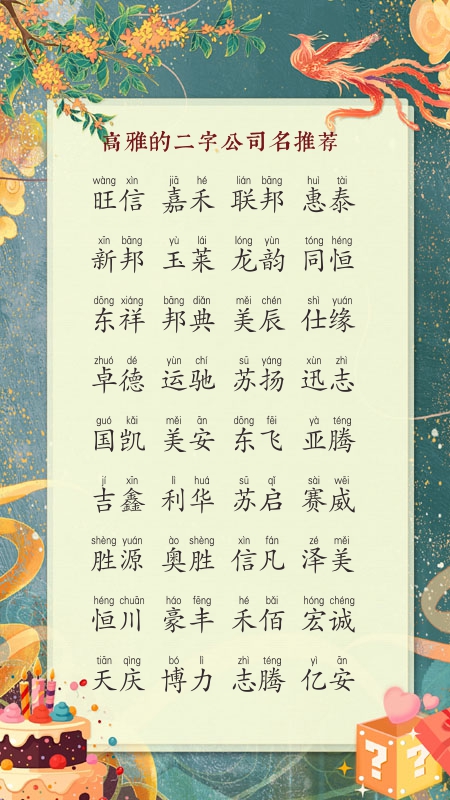 高雅的二字公司名推荐
wàng xìn jiā hé lián bāng huì tài
旺信 嘉禾 联邦 惠泰
xīn bāng yù lái lóng yùn tóng héng
新邦 玉莱 龙韵 同恒
dōng xiáng bāng diǎn měi chén shì yuán
东祥 邦典 美辰 仕缘
zhuó dé yùn chí sū yáng xùn zhì
卓德 运驰 苏扬 迅志
guó kǎi měi ān dōng fēi yà téng
国凯 美安 东飞 亚腾
jí xīn lì huá sū qǐ sài wēi
吉鑫 利华 苏启 赛威
shèng yuán ào shèng xìn fán zé měi
胜源 奥胜 信凡 泽美
héng chuān háo fēng hé bǎi hóng chéng
恒川 豪丰 禾佰 宏诚
tiān qìng bó lì zhì téng yì ān
天庆 博力 志腾 亿安
? ?